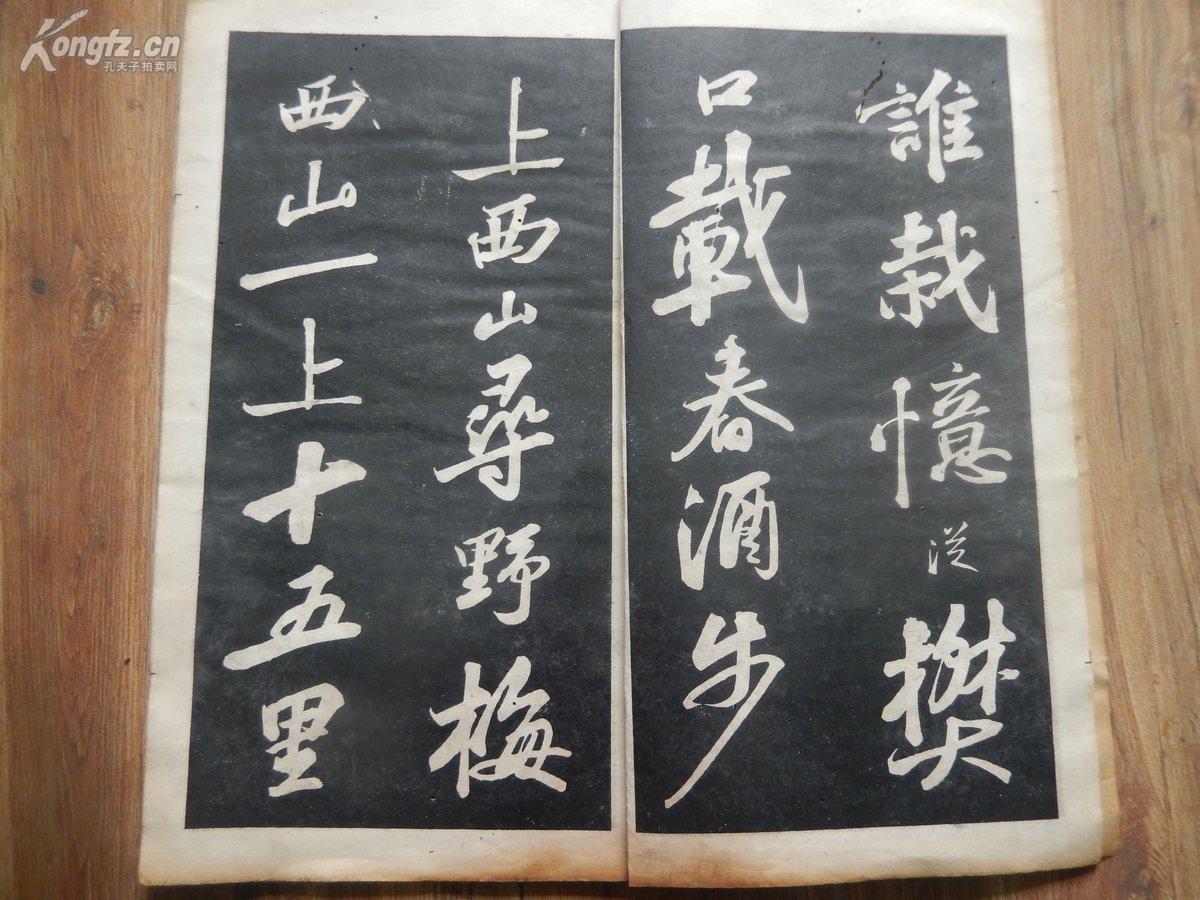 誰栽憶從樊
口載春酒步
上西山尋野梅
西山一上十五里
Kongfz.cn
孔夫子拍卖网